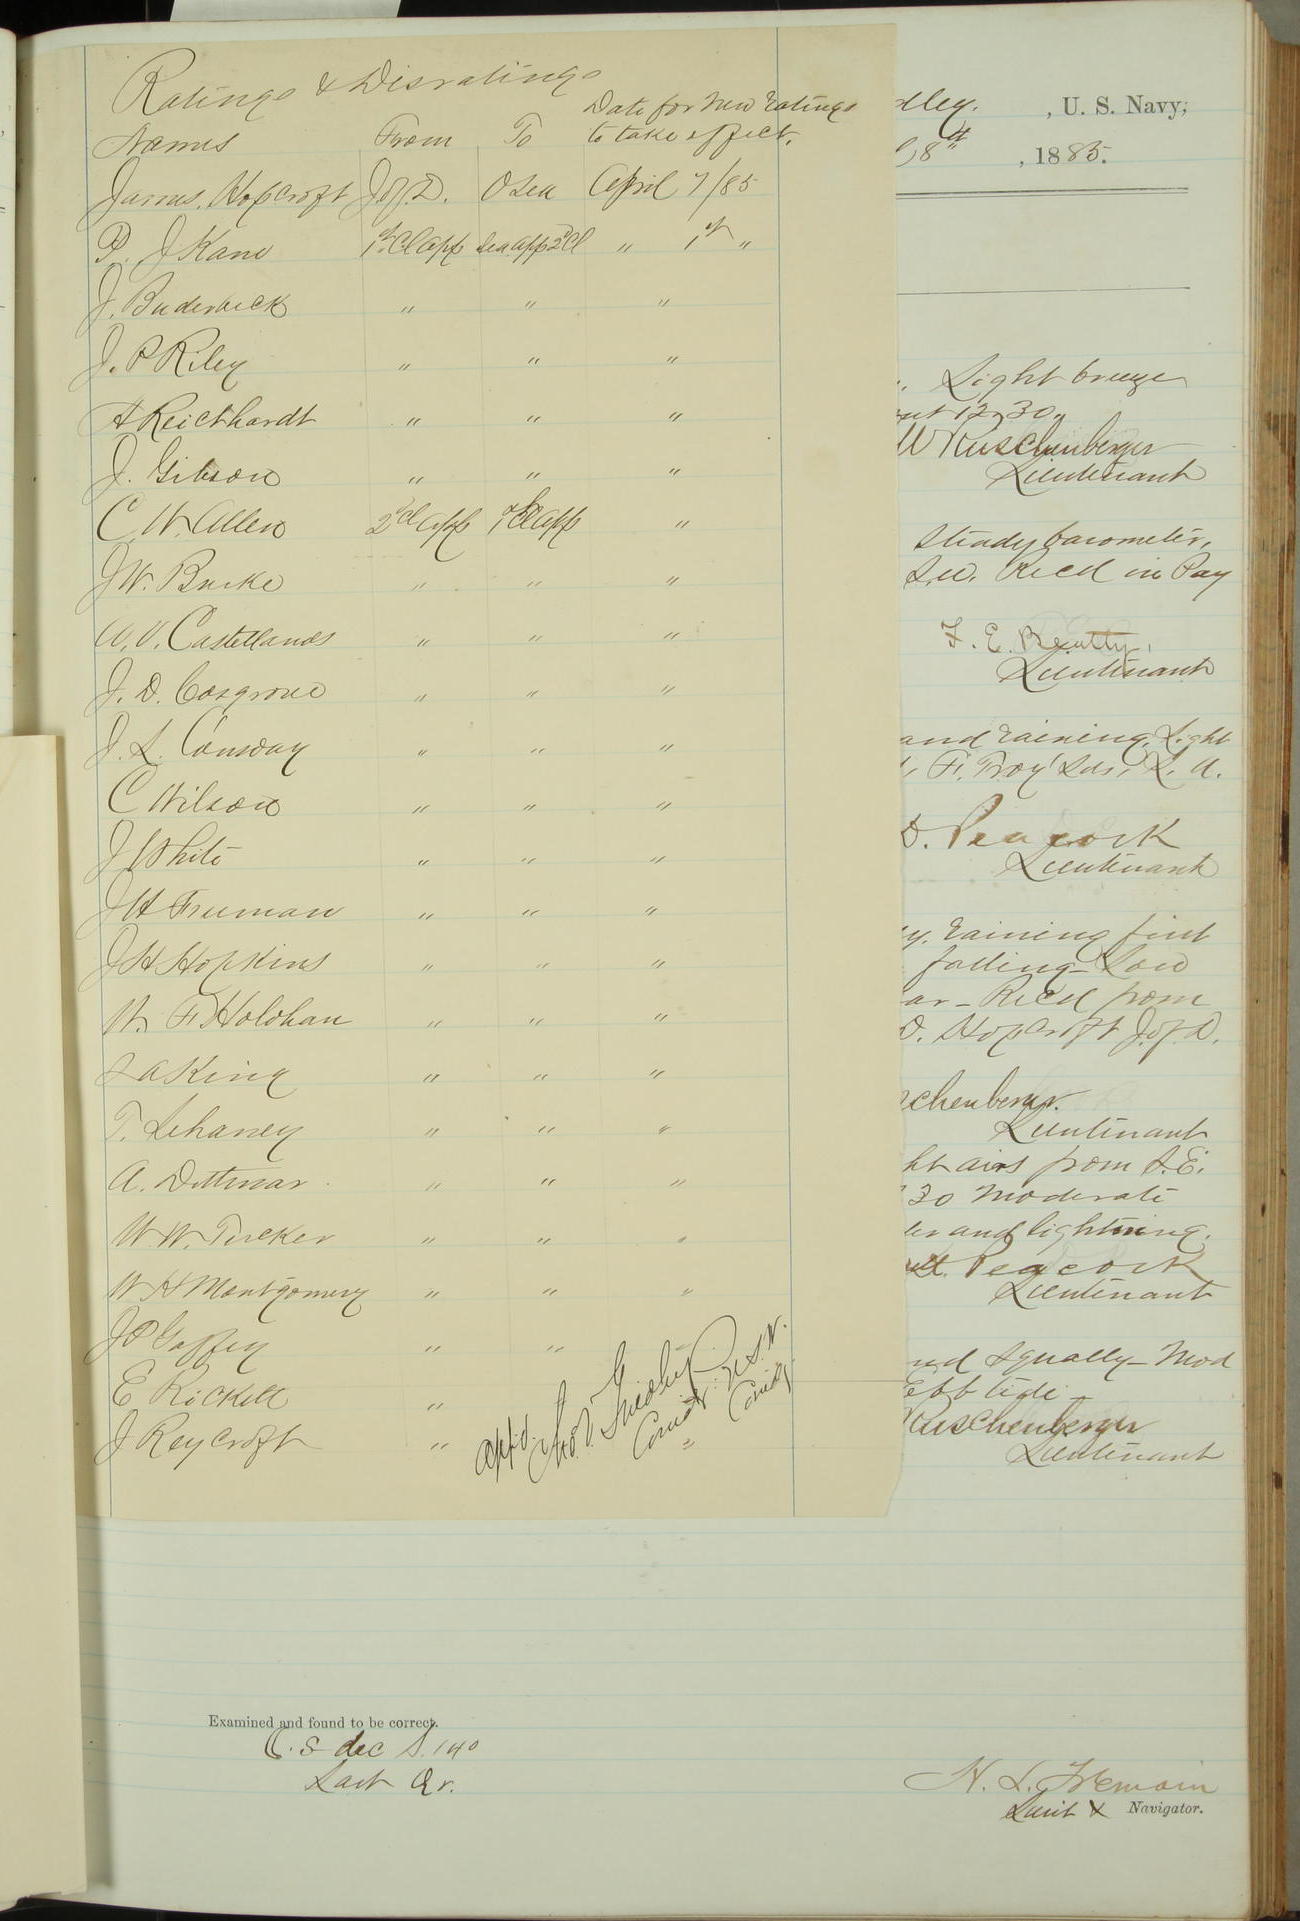 Ratings & Disratings
Names From To Date for New Ratings
to take effect.
James. Hopcroft J. of D. O Sea April 7/85
P. J Kane 1st Cl App Sea. app 2d Cl " 1st "
J. Buderwick " " "
J. P Riley " " "
A Reichhardt " " "
J. Gibson " " "
C. W. Allen 2d Cl App 1st Cl App "
J W. Burke " " "
A. V. Castellanos " " "
J. D. Cosgrove " " "
J. L. Conway " " "
C Wilson " " "
J White " " "
J H Freeman " " "
J H Hopkins " " "
W. F. Holohan " " "
King " " "
T. Lehaney " " "
A. Dittmar " " "
W. W. Tucker " " "
W H Montgomery " " "
J P Gaffey " " "
E Rockett "
J Reycroft " "
App'd.
Comd'r. U.S.N.
Comd'g
dley. , U. S. Navy,
8th , 1885.
Light breeze
12.30.
W Ruschenberger
Lieutenant
Steady barometer.
Rec'd in Pay
F. E. Beatty,
Lieutenant
and raining, Light
F. Troy
D. Peacock
Lieutenant
y. raining first
falling - Low
ar - Rec'd from
D. Hopcroft J. of D.
schenberger.
Lieutenant
ht airs from S.E.
30 Moderate
er and lightning.
Peacock
Lieutenant
nd Squally - Mod
Ebb tide -
Ruschenberger
Lieutenant
Examined and found to be correct.
C. S dec S. 140
Last Qr.
H. L. Tremain
Lieut & Navigator.